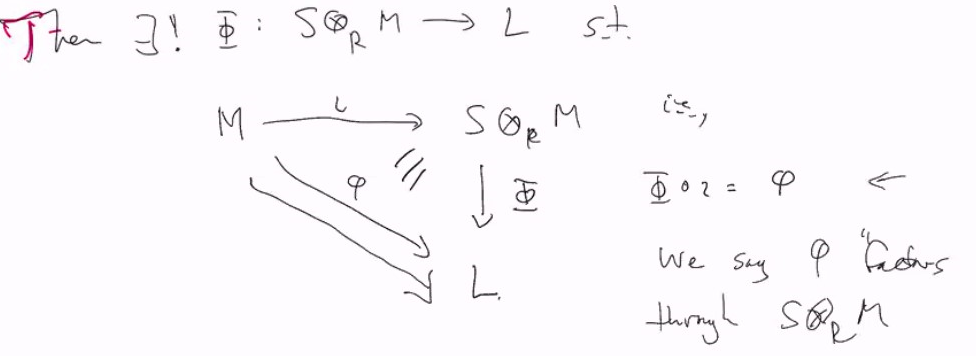 Then ∃! Φ : S⊗_R M → L s.t.
M ι→ S⊗_R M i.e.,
φ ↓ Φ Φ ∘ ι = φ ←
L. We say φ "factors
through S⊗_R M